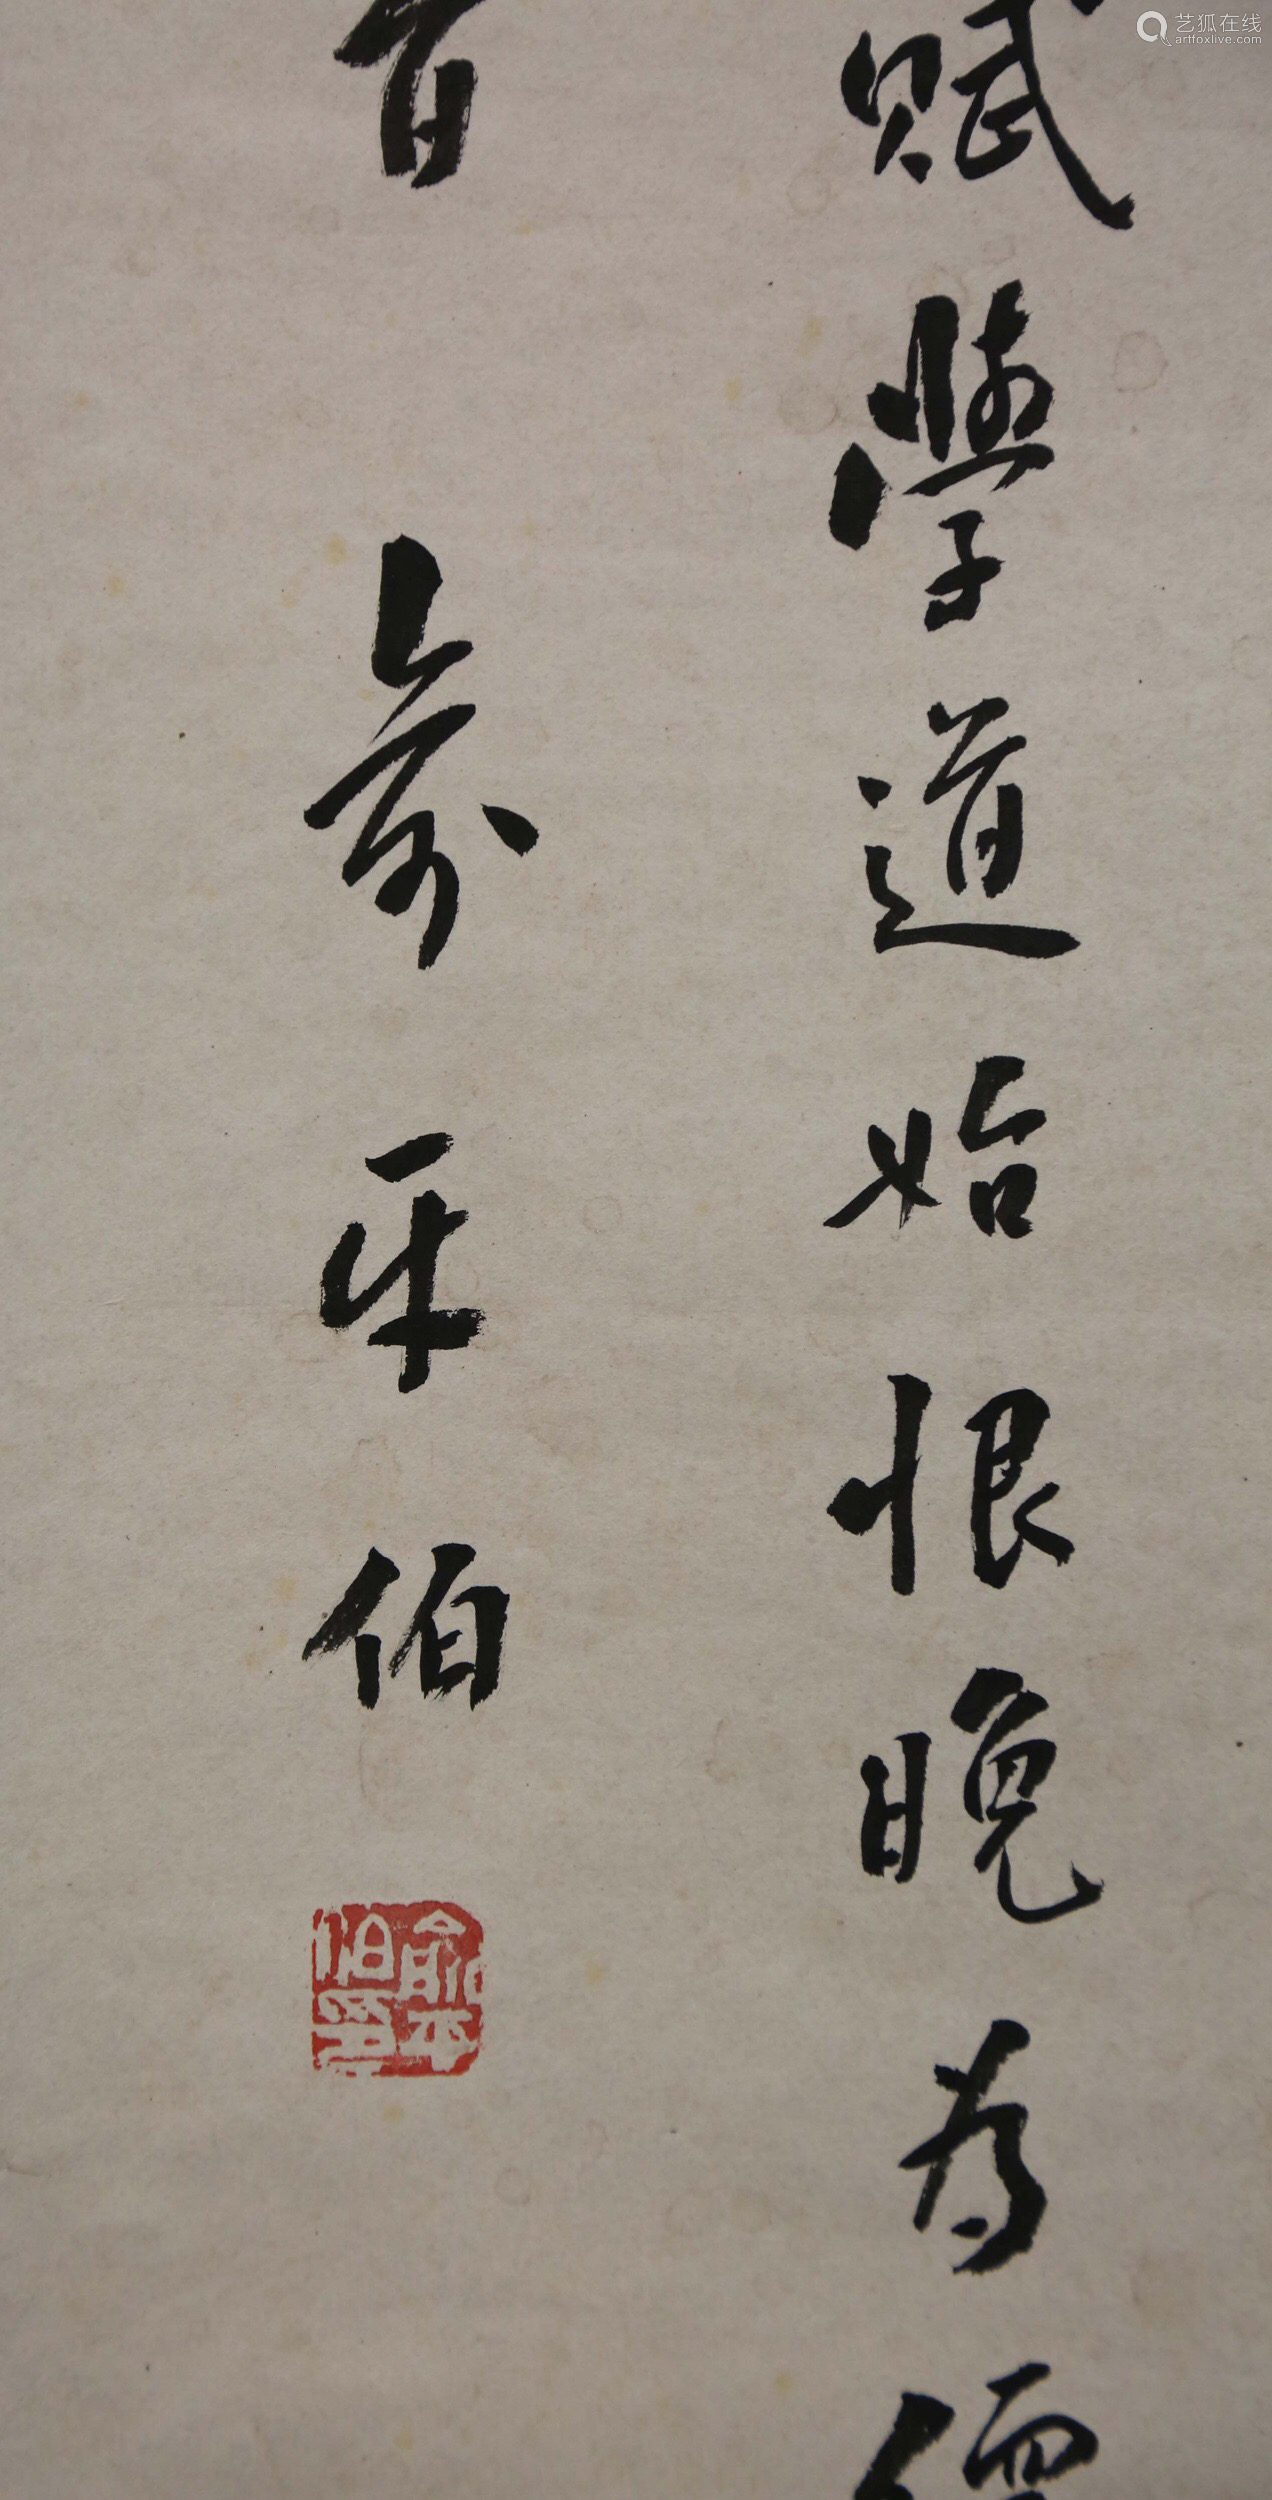 艺狐在线
artfoxlive.com
賦學道始恨晚为
俞平伯
俞平伯印